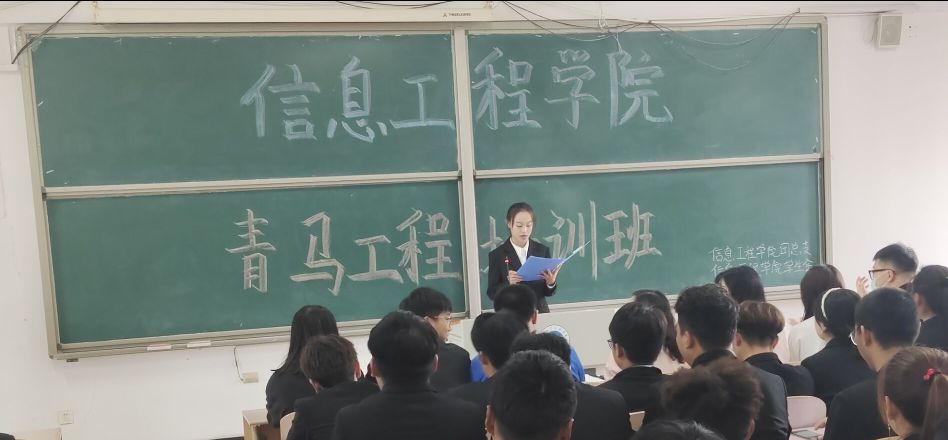 信息工程学院
青马工程 训班
信息工程学院团总支
信息工程学院学生会